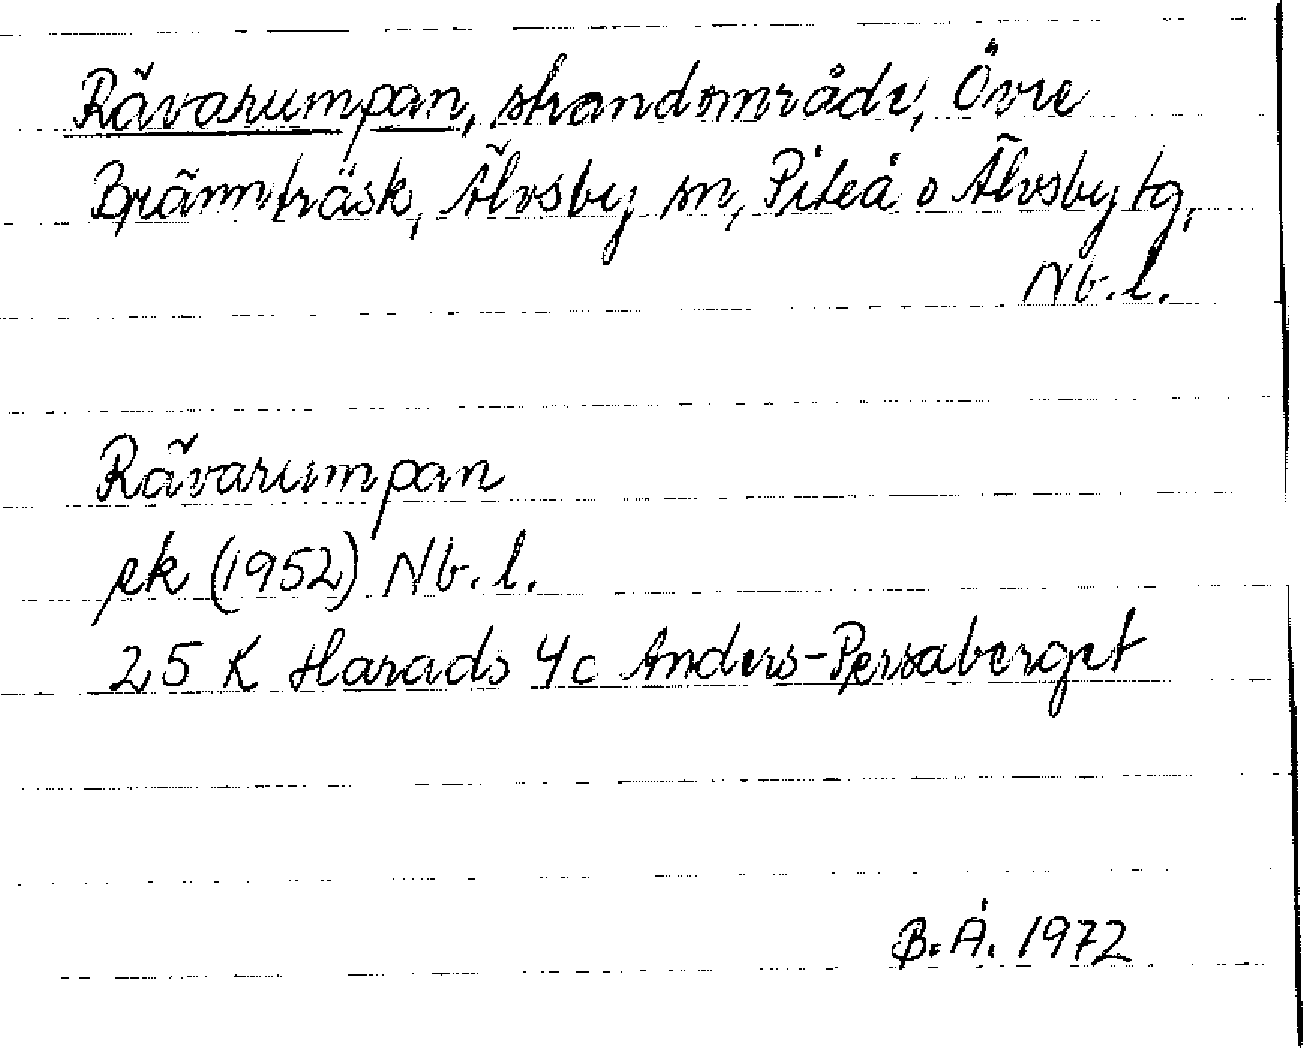 Rävarumpan, strandområde, Övre
Brännträsk, Älvsby sn, Piteå o Älvsby tg,
Nb. l.
Rävarumpan
ek (1952) Nb. l.
25 K Harads 4c Anders-Persaberget
B. Å. 1972